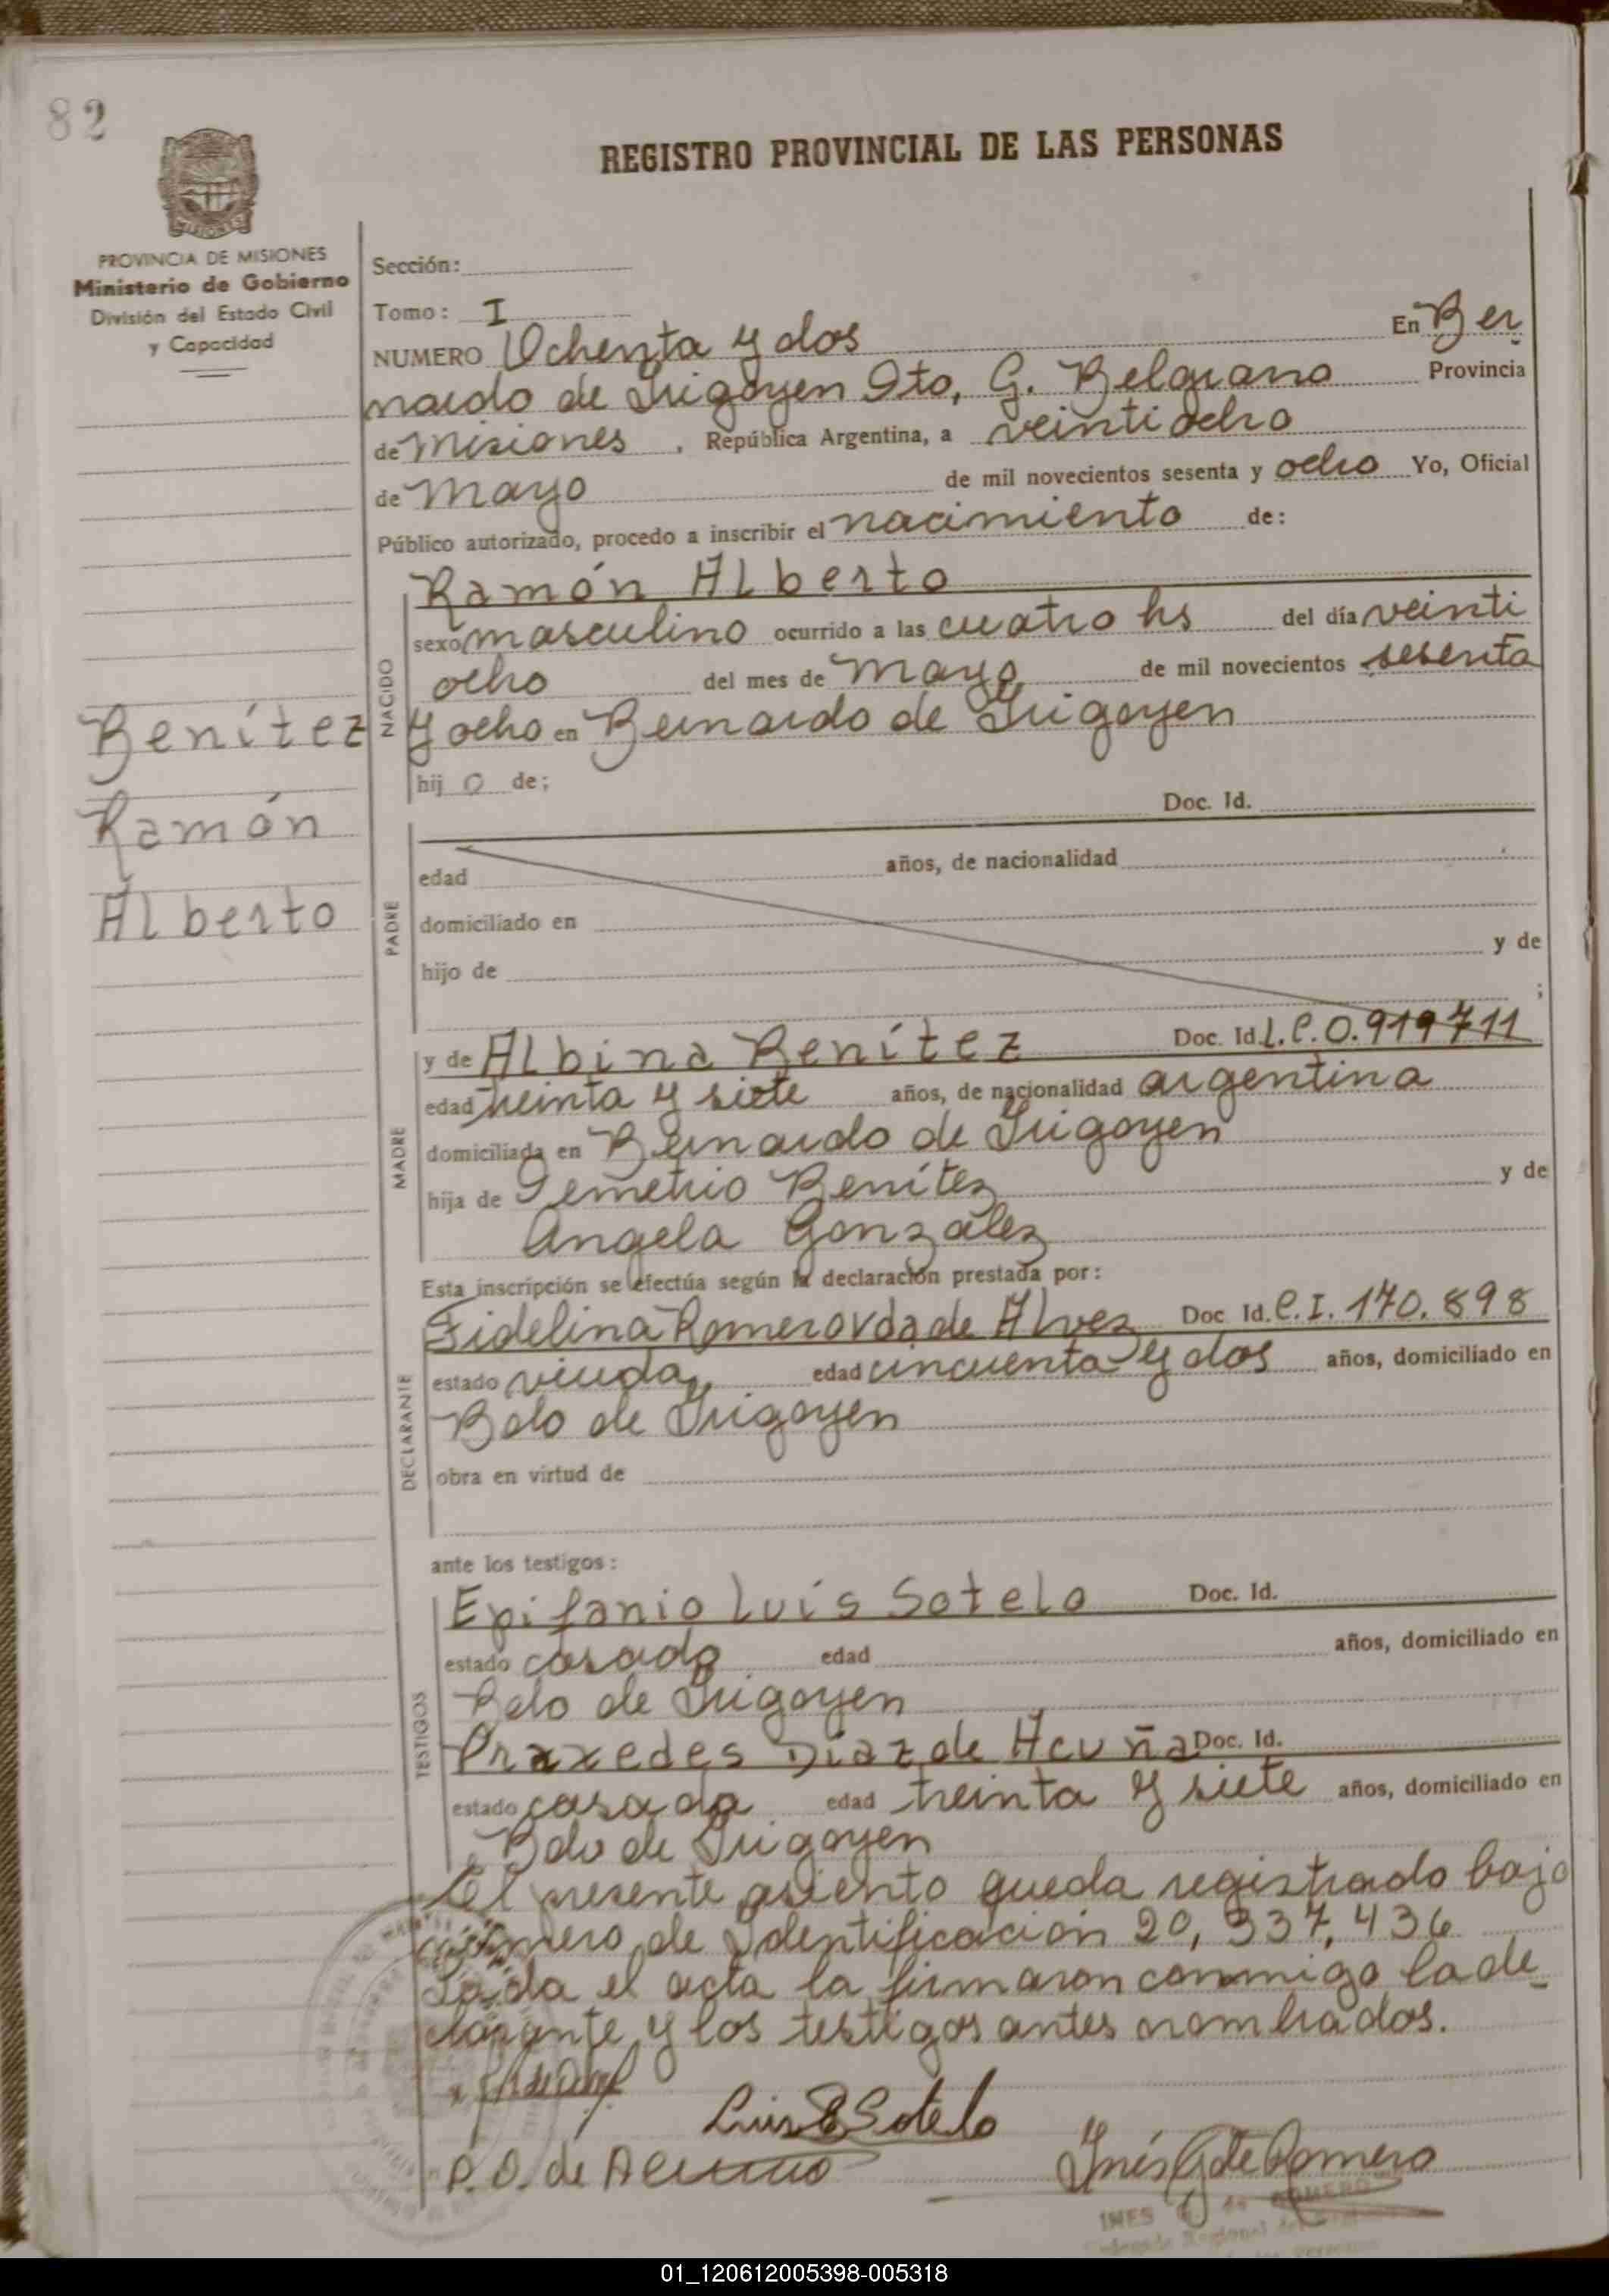 82
REGISTRO PROVINCIAL DE LAS PERSONAS
MISIONES
PROVINCIA DE MISIONES
Ministerio de Gobierno
División del Estado Civil
y Capacidad
Sección:
Tomo: I
NUMERO Ochenta y dos En Ber
nardo de Irigoyen Dto, G. Belgrano Provincia
de Misiones , República Argentina, a veinti ocho
de Mayo de mil novecientos sesenta y ocho Yo, Oficial
Público autorizado, procedo a inscribir el nacimiento de:
NACIDO
Ramón Alberto
sexo masculino ocurrido a las cuatro hs del día veinti
ocho del mes de Mayo de mil novecientos sesenta
y ocho en Bernardo de Irigoyen
hij o de;
Benítez
Ramón
Alberto
PADRE
Doc. Id.
edad años, de nacionalidad
domiciliado en
hijo de y de
;
MADRE
y de Albina Benítez Doc. Id. L.C. 0.919711
edad treinta y siete años, de nacionalidad argentina
domiciliada en Bernardo de Irigoyen
hija de Demetrio Benítez y de
Angela González
Esta inscripción se efectúa según la declaración prestada por:
DECLARANTE
Fidelina Romero Vda de Alvez Doc. Id. C.I. 170.898
estado viuda edad cincuenta y dos años, domiciliado en
Bdo de Irigoyen
obra en virtud de
ante los testigos:
TESTIGOS
Epifanio Luis Sotelo Doc. Id.
estado casado edad años, domiciliado en
Bdo de Irigoyen
Praxedes Díaz de Acuña Doc. Id.
estado casada edad treinta y siete años, domiciliado en
Bdo de Irigoyen
El presente asiento queda registrado bajo
número de Identificación 20,337,436
Leída el acta la firmaron conmigo la de_
clarante y los testigos antes nombrados.
Luis E Sotelo
P. D. de Acuña
Inés G de Romero
INES G. de ROMERO
01_120612005398-005318